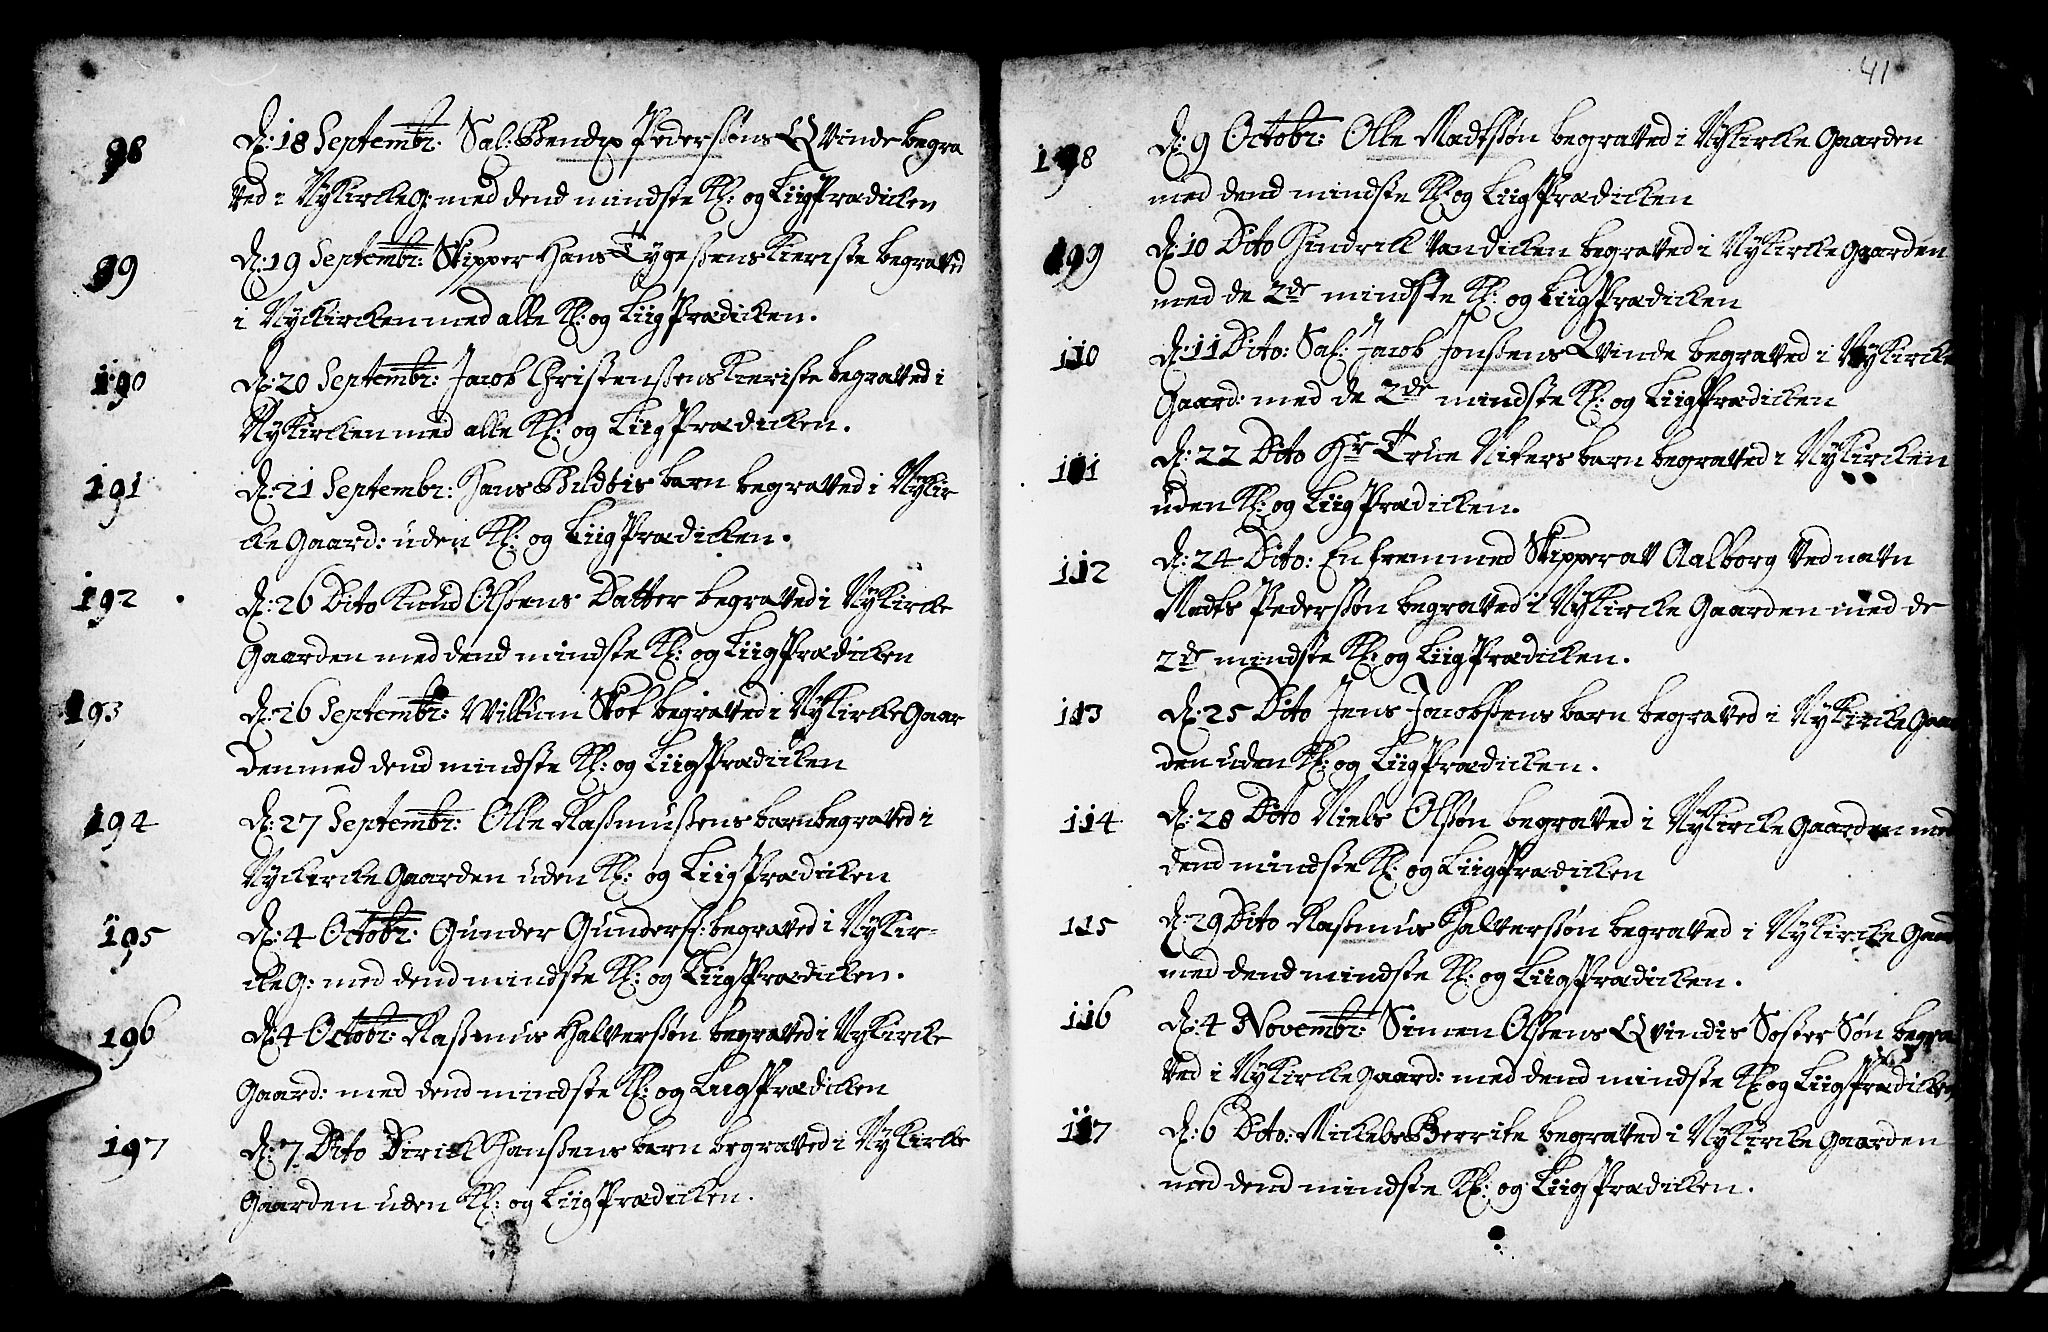 98 D: 18 Septembr: Sal: Bendix Pederssøns Qvinde begra
ved i NyKircke G: med dend mindste Kl: og LiigPrædicken
99 D: 19 Septembr: Skipper Hans Tygessens Kieriste begraved
i Nykircken med alle Kl: og LiigPrædicken.
190 D: 20 Septembr: Jacob Christenssens Kieriste begraved i
NyKircken med alle Kl: og LiigPrædicken.
191 D: 21 Septembr: Hans Bildtis barn begraved i NyKir
cke Gaard: uden Kl: og LiigPrædicken.
192 D: 26 Dito Knud Olssens Datter begraved i NyKircke
Gaarden med dend mindste Kl: og LiigPrædicken
193 D: 26 Septembr: Willum Skot begraved i NyKircke Gaar
den med dend mindste Kl: og LiigPrædicken
194 D: 27 Septembr: Olle Rasmussens barn begraved i
Nykircke Gaarden uden Kl: og LiigPrædicken
195 D: 4 Octobr: Gunder Gunders: begraved i NyKir-
cke G: med dend mindste Kl: og LiigPrædicken.
196 D: 4 Octobr: Rasmus Halverssøn begraved i NyKircke
Gaard: med dend mindste Kl: og LiigPrædicken
197 D: 7 Dito Dirick Hanssens barn begraved i NyKircke
Gaarden uden Kl: og LiigPrædicken.
41
198 D: 9 Octobr: Olle Madtssøn begraved i NyKircke Gaarden
med dend mindste Kl: og LiigPrædicken
199 D: 10 Dito Hindrick Vandicken begraved i NyKircke Gaarden
med de 2de mindste Kl: og LiigPrædicken
110 D: 11 Dito: Sal: Jacob Jonssens Qvinde begraved i NyKircke
Gaard: med de 2de mindste Kl: og LiigPrædicken
111 D: 22 Dito Hr True Nifers barn begraved i NyKircken
uden Kl: og LiigPrædicken.
112 D: 24 Dito: En fremmed Skipper av Aalborg ved navn
Madts Pederssøn begraved i NyKircke Gaarden med de
2de mindste Kl: og LiigPrædicken.
113 D: 25 Dito Jens Jacobssens barn begraved i NyKircke Gaar
den uden Kl: og LiigPrædicken.
114 D: 28 Dito Niels Olssøn begraved i NyKircke Gaarden med
dend mindste Kl: og LiigPrædicken
115 D: 29 Dito Rasmus Halverssøn begraved i NyKircke Gaard
med dend mindste Kl: og LiigPrædicken.
116 D: 4 Novembr: Simen Olssens Qvindis Søster Søn begra
ved i NyKircke Gaard: med dend mindste Kl: og LiigPrædicken
117 D: 6 Dito: Mickel Berrike begraved i NyKircke Gaarden
med dend mindste Kl: og LiigPrædicken.